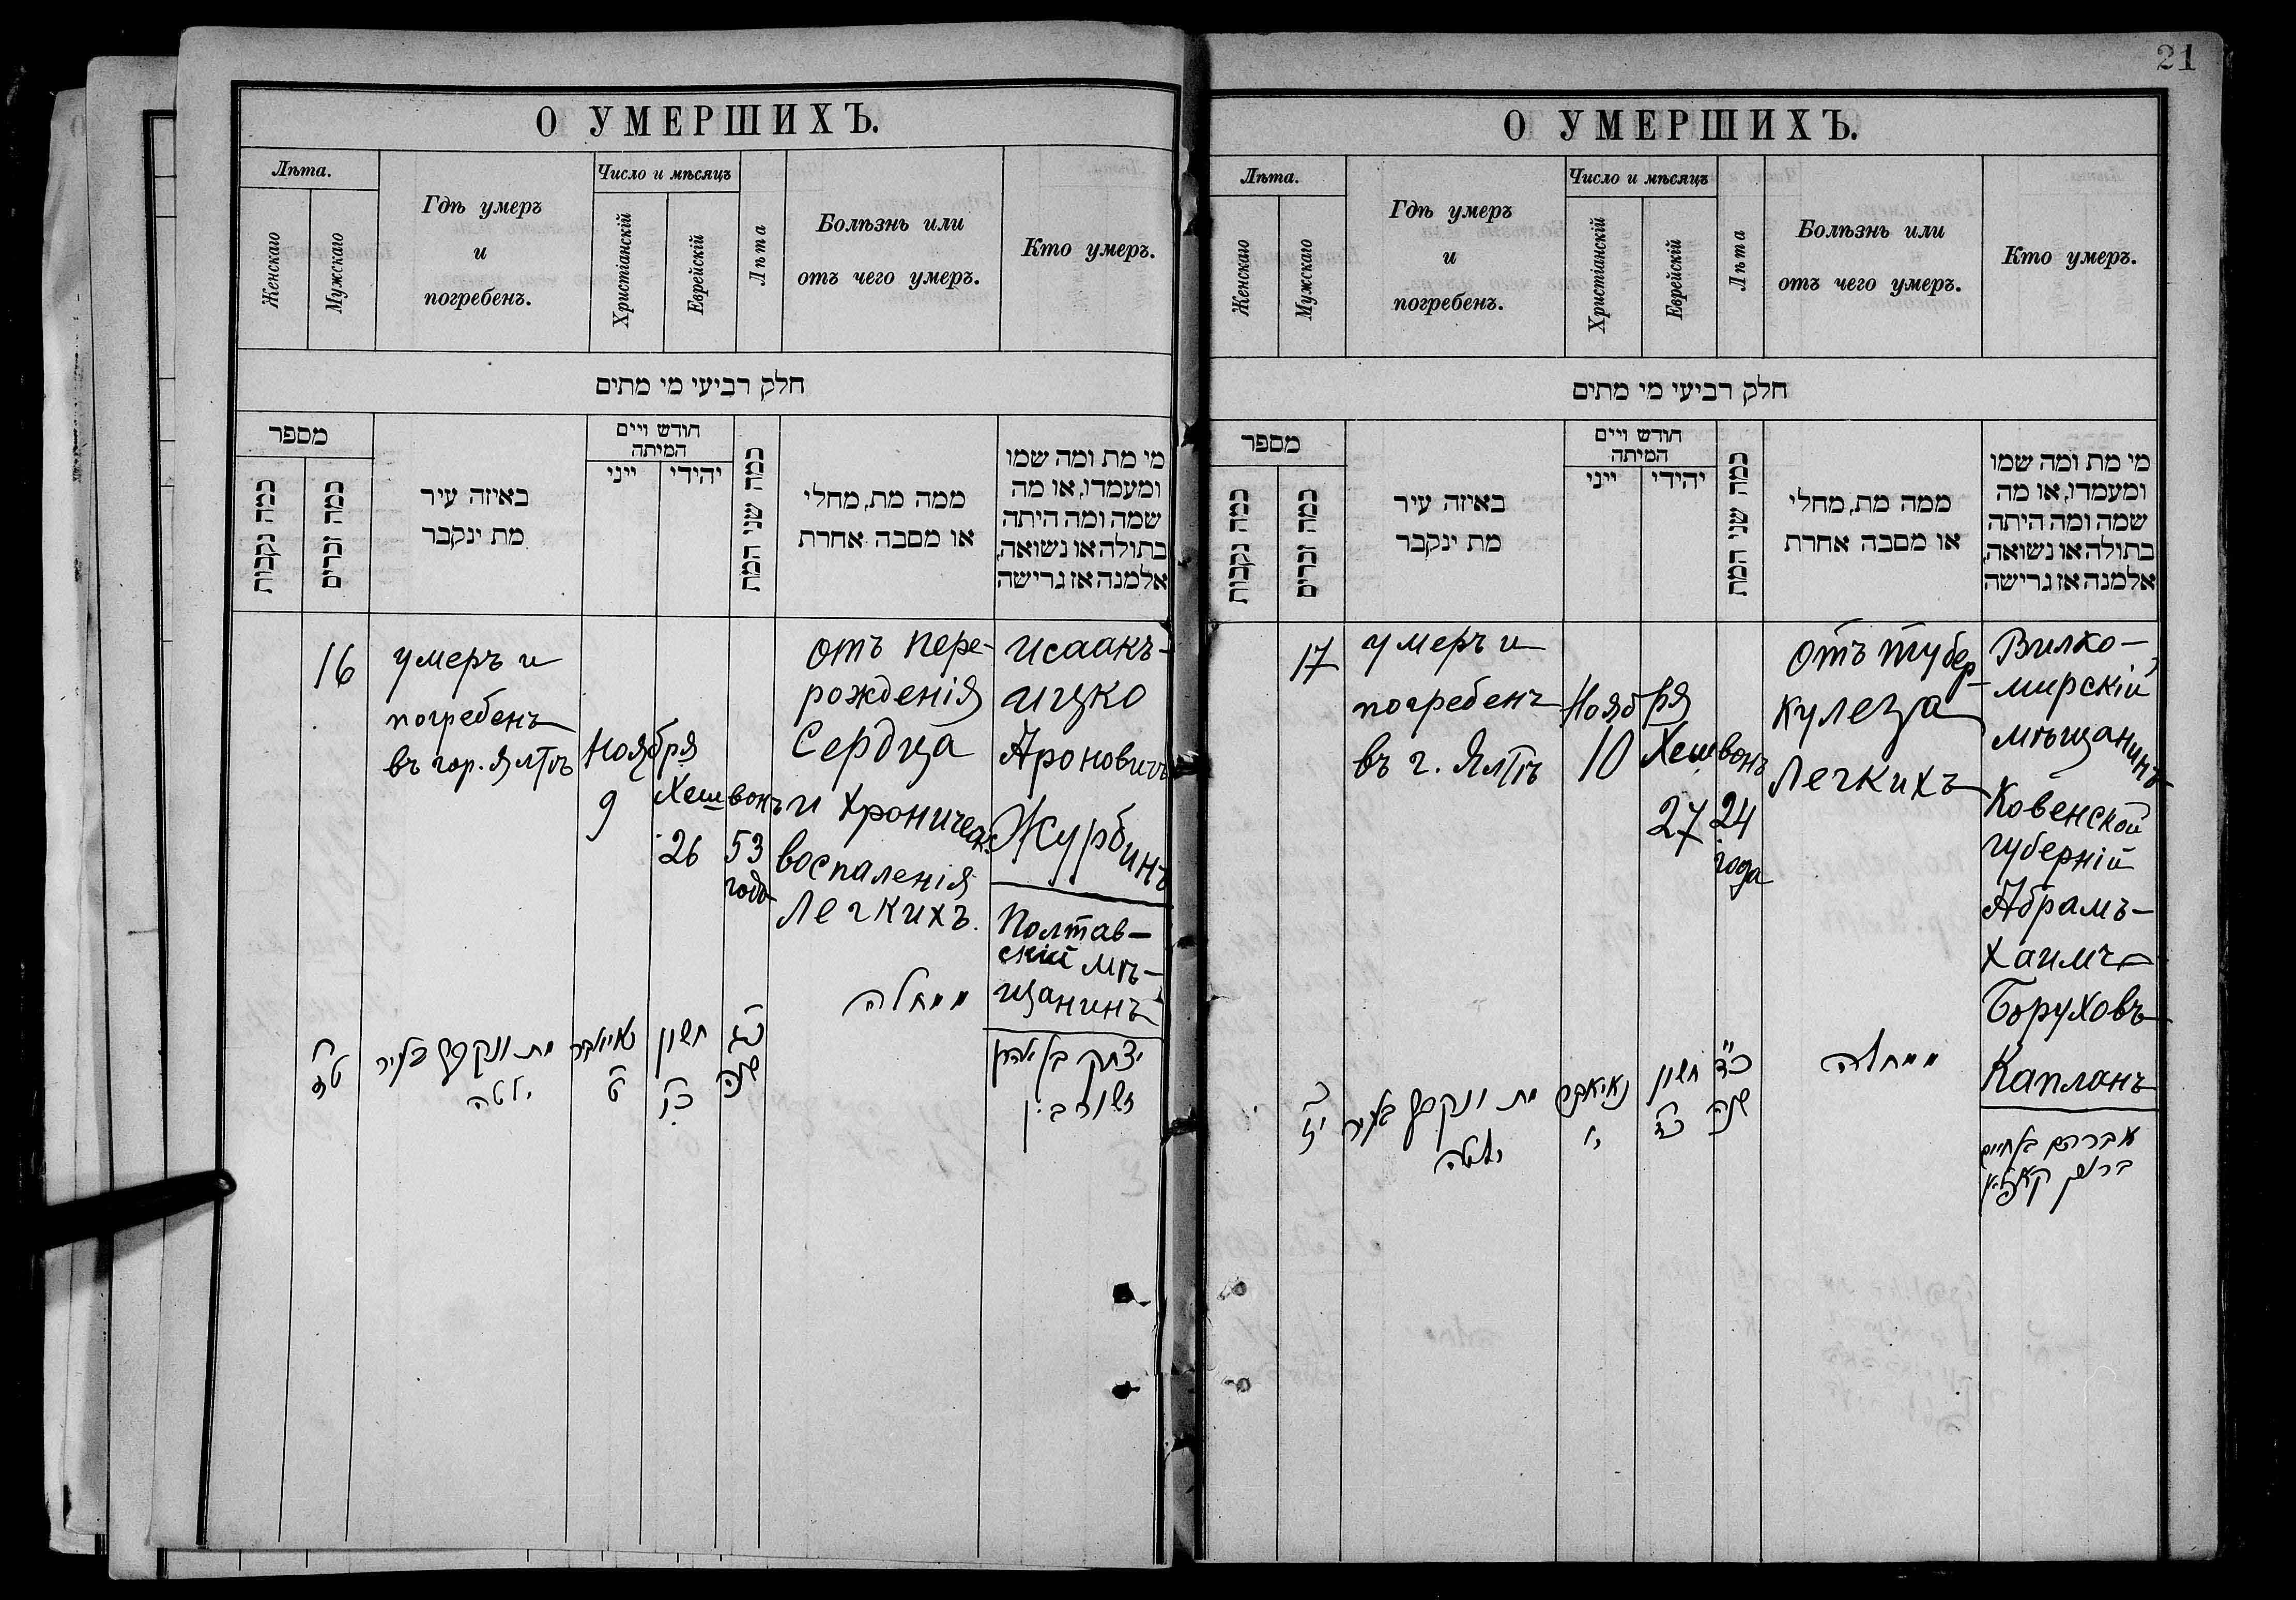 О УМЕРШИХЪ.
Лѣта.
Женскаго
Мужскаго
Гдѣ умеръ
и
погребенъ.
Число и мѣсяцъ
Христіанскій
Еврейскій
Лѣта
Болѣзнь или
отъ чего умеръ.
Кто умеръ.
חלק רביעי מי מתים
מספר
כמה נקבות
כמה זכרים
באיזה עיר
מת ינקבר
חודש ויים
המיתה
ייני
יהידי
כמה שני המת
ממה מת, מחלי
או מסבה אחרת
מי מת ומה שמו
ומעמדו, או מה
שמה ומה היתה
בתולה או נשואה,
אלמנה אז גרישה
16
умеръ и
погребенъ
въ гор. Ялтѣ
Ноября
9
Хешвонъ
26
53
года
отъ пере-
рожденія
Сердца
и хроническ.
воспаленія
Легкихъ.
Исаакъ-
ицко
Ароновичъ
Журбинъ
Полтав-
скій мѣ-
щанинъ
מת ונקבר בעיר
יאלטה
חשון
שנה
ממחלה
יצחק בן אהרן
זשורבין
21
О УМЕРШИХЪ.
Лѣта.
Женскаго
Мужскаго
Гдѣ умеръ
и
погребенъ.
Число и мѣсяцъ
Христіанскій
Еврейскій
Лѣта
Болѣзнь или
отъ чего умеръ.
Кто умеръ.
חלק רביעי מי מתים
מספר
כמה נקבות
כמה זכרים
באיזה עיר
מת ינקבר
חודש ויים
המיתה
ייני
יהידי
כמה שני המת
ממה מת, מחלי
או מסבה אחרת
מי מת ומה שמו
ומעמדו, או מה
שמה ומה היתה
בתולה או נשואה,
אלמנה אז גרישה
17
умеръ и
погребенъ
въ г. Ялтѣ
Ноября
10
Хешвонъ
27
24
года
отъ тубер-
кулеза
Легкихъ
Вилко-
мирскій
мѣщанинъ
Ковенской
губерній
Абрамъ-
Хаимъ
Боруховъ
Капланъ
מת ונקבר בעיר
יאלטה
חשון
שנה
ממחלה
אברהם חיים
ברוך קאפלאן